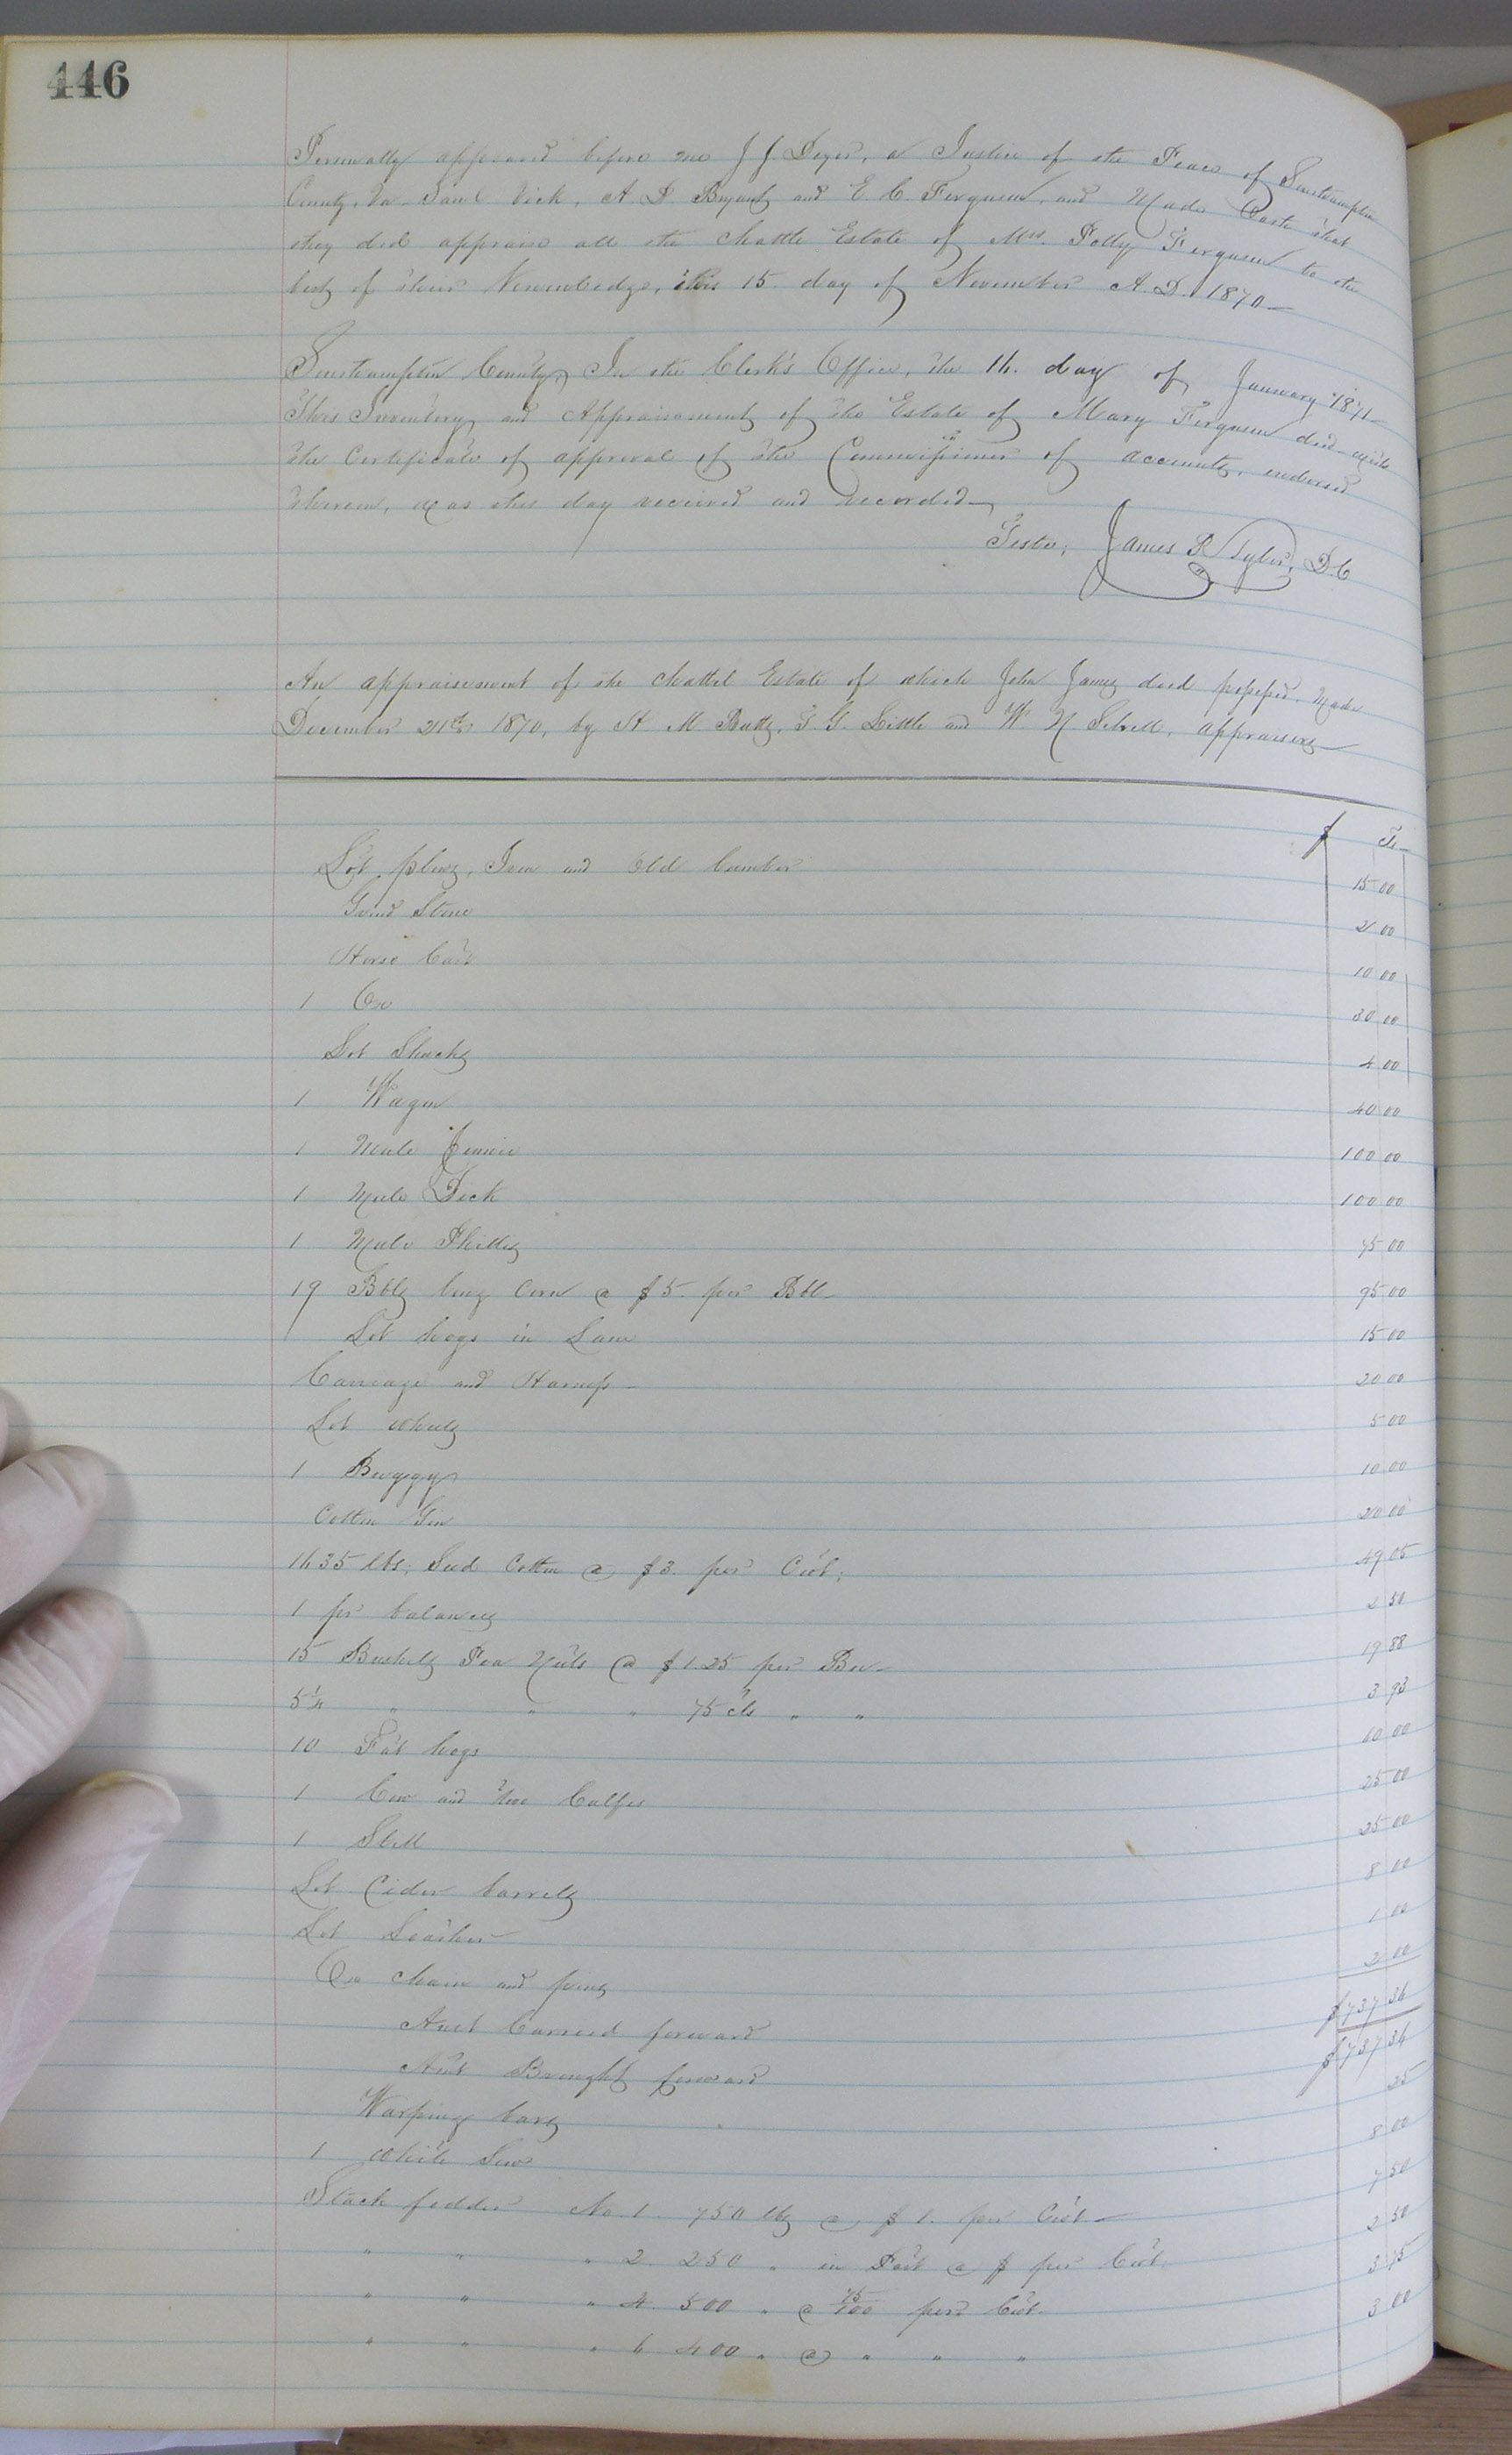 446
Personally appeared before me J J. Deyer, a Justice of the Peace of Southampton
County, Va. Saml Vick, A. D. Bryant and E. C. Ferguson, and Made Oath that
they did appraise all the Chattle Estate of Mrs. Polly Ferguson to the
best of their Knowledge, this 15. day of November A. D. 1870—
Southampton County, In the Clerk's Office, the 16. day of January 1871—
This Inventory and Appraisement of the Estate of Mary Ferguson decd with
the Certificate of approval of the Commissioner of accounts, endorsed
thereon, was this day received and recorded—
Teste; James R Tyler, D.C
An appraisement of the Chattel Estate of which John James died possessed, Made
December 21st 1870, by H. M Butts, T. G. Little and W. N. Sebrell, appraisers—
$ Cts
Lot plows, Iron and Old lumber 15 00
Grind Stone 2 00
Horse Cart 10 00
1 Ox 30 00
Lot Shucks 4 00
1 Wagon 40 00
1 Mule Jennie 100 00
1 Mule Dick 100 00
1 Mule Phillis 75 00
19 Bbls long Corn @ $5. per Bbl— 95 00
Lot hogs in Lane 15 00
Carriage and Harness— 20 00
Lot wheels 5 00
1 Buggy 10 00
Cotton Gin 20 00
1635 lbs, Seed Cotton @ $3. per Cwt; 49 05
1 pr balances 2 50
15 Bushels Pea Nuts @ $1.25 per Bu— 19 88
5¼ " " " 75 cts " " 3 93
10 Fat hogs 60 00
1 Cow and two Calfes 25 00
1 Still 25 00
Lot Cider barrels 8 00
Lot Leather— 1 00
Ox chain and pins 2 00
Amt Carried forward $737 36
Amt Brought forward $737 36
Warping bars 25
1 White Sow 8 00
Stack fodder No. 1. 750 lbs @ $1. per Cwt— 7 50
" " " 2. 250 " in Part @ $ per Cwt. 2 50
" " " 4. 500 " @ 75/100 per Cwt— 3 75
" " " 6 400 " @ " " " 3 00